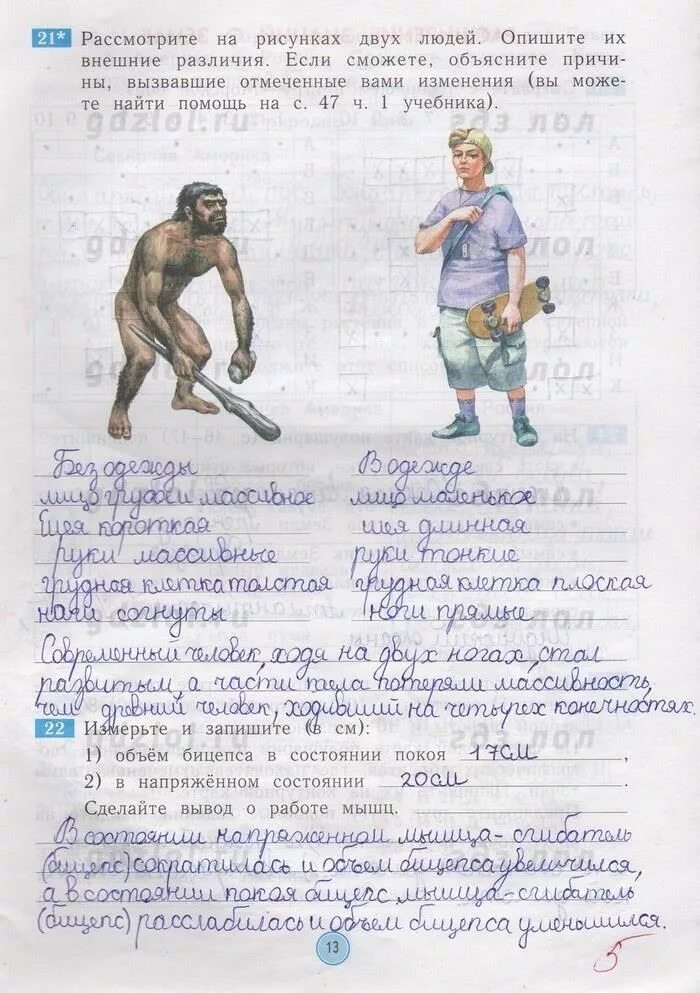 21* Рассмотрите на рисунках двух людей. Опишите их
внешние различия. Если сможете, объясните причи-
ны, вызвавшие отмеченные вами изменения (вы може-
те найти помощь на с. 47 ч. 1 учебника).
gdzlol.ru гдз лол
Без одежды В одежде
лицо грубое и массивное лицо маленькое
Шея короткая шея длинная
руки массивные руки тонкие
грудная клетка толстая грудная клетка плоская
ноги согнуты ноги прямые
Современный человек, ходя на двух ногах, стал
развитым, а части тела потеряли массивность,
чем древний человек, ходивший на четырех конечностях.
22 Измерьте и запишите (в см):
1) объём бицепса в состоянии покоя 17см ,
2) в напряжённом состоянии 20см .
Сделайте вывод о работе мышц.
В состоянии напряженной мышца-сгибатель
(бицепс) сократилась и объем бицепса увеличился,
а в состоянии покоя бицепс мышца-сгибатель
(бицепс) расслабилась и объем бицепса уменьшился.
13
5